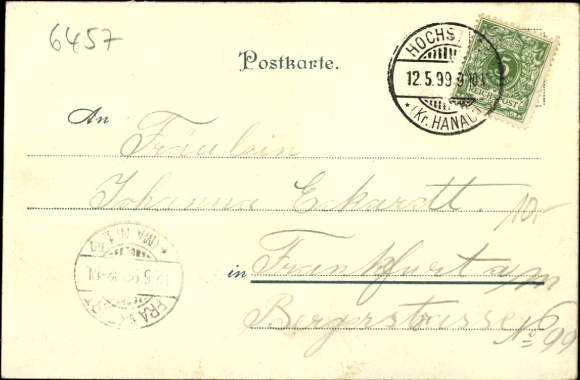 6457
Postkarte.
HOCHST
12.5.99 9-10V.
* (Kr. HANAU) *
5
REICHSPOST
An Fräulein
Johanna Eckardt.
10-
in Frankfurt a/m
Bergerstrasse
No 99
FRANKFURT
12.5.99
(MAIN)